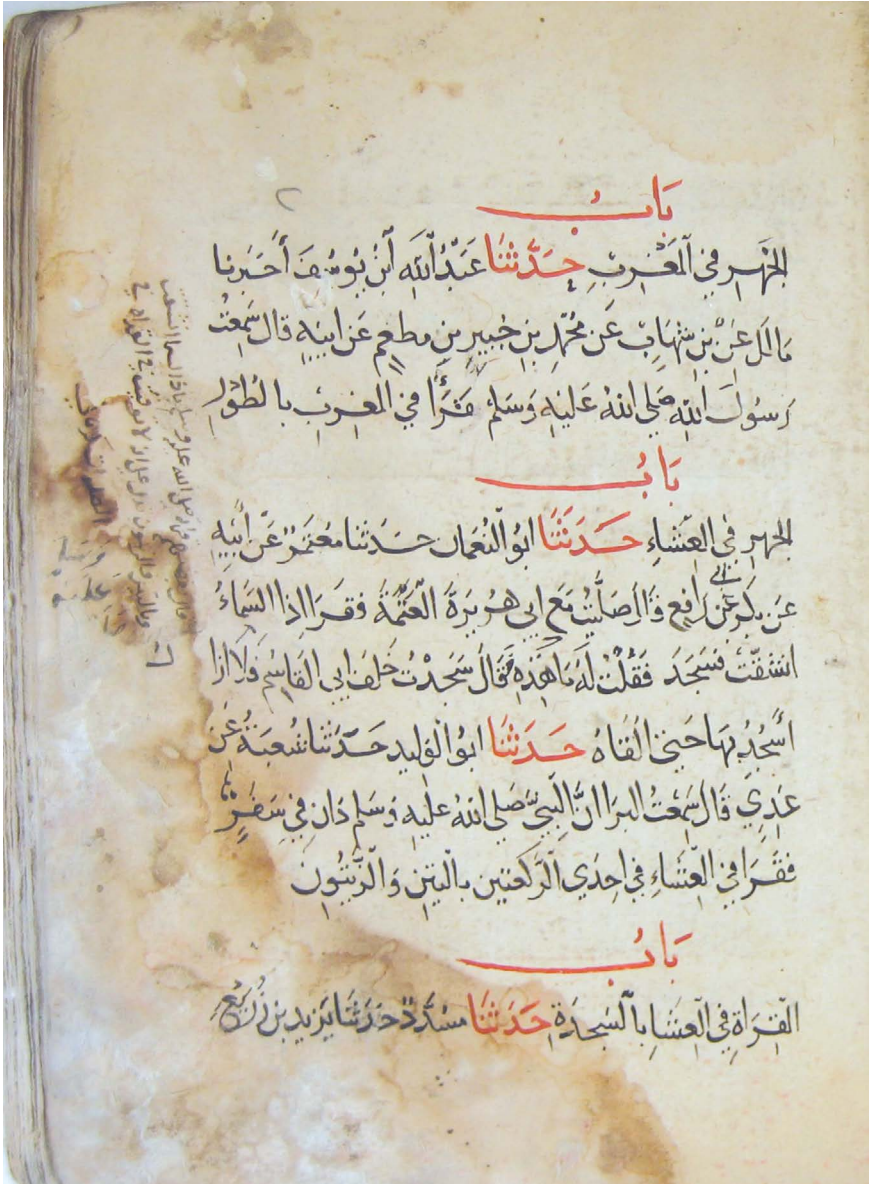 بَابُ
الجَهرِ في المَغرِبِ حَدَّثنَا عَبدُ اللهِ ابنُ يُوسُفَ أَخبَرنا
مالك عَن بنِ شِهَابٍ عَن مُحَمَّدِ بنِ جُبيرِ بنِ مطعم عَن ابيهِ قال سَمِعْتُ
رَسُولَ اللهِ صَلى اللهُ عَليهِ وَسَلم قَرَأَ في المَغرِبِ بالطُوْرِ
بَابُ
الجهرِ في العِشَاءِ حَدَثَنَا ابوُ النُعمان حَدثنا معُتَمَرٌ عَن أَبيهِ
عَن بَكرٍ عَن ابي رَافِعٍ قَال صَلَّيتُ مَع ابي هُرَيرَةَ العَتَمَةَ فقَرَا اذا السَّماءُ
انشقّت فسَجَدَ فَقُلْتُ لَهُ مَا هَذِهِ قَالَ سَجَدْتُ خَلفَ ابي القَاسِم فَلَا ازا
أسجُدُ بهَا حَتى القَاهُ حَدَثنَا ابوُ الوَليد حَدَّثنا شُعبَةُ عَن
عَدِي قَالَ سَمِعْتُ البرَا انَّ النَّبِيَّ صَلى اللهُ عليهِ وَسَلم كان في سَفَرٍ
فقَرَا في العِشَاءِ في احِدَي الرَّكعَتين بالتين وَالزَّيتُونِ
بَابُ
القِرَاةِ في العِشَا بِالسَّجدَةِ حَدَثنَا مسُدَّدٌ حَدَثنَا يَزيد بن زُرَيْعٍ